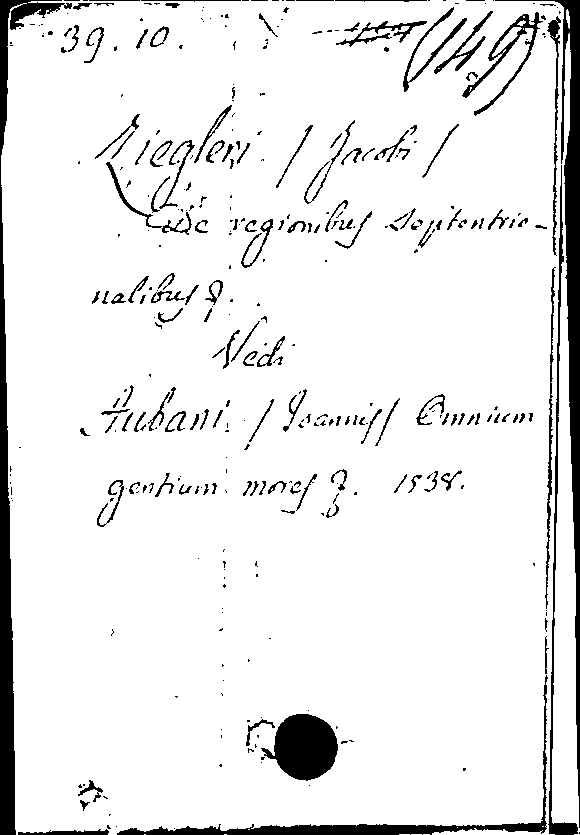 39. 10. (149)
Ziegleri / Jacobi /
De regionibus septentrio-
nalibus &.
Vedi
Aubani / Joannis / Omnium
gentium mores &. 1538.